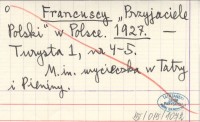 Francuscy „Przyjaciele
Polski" w Polsce. 1927. —
Turysta 1, nr 4-5.
M.in. wycieczka w Tatry
i Pieniny.